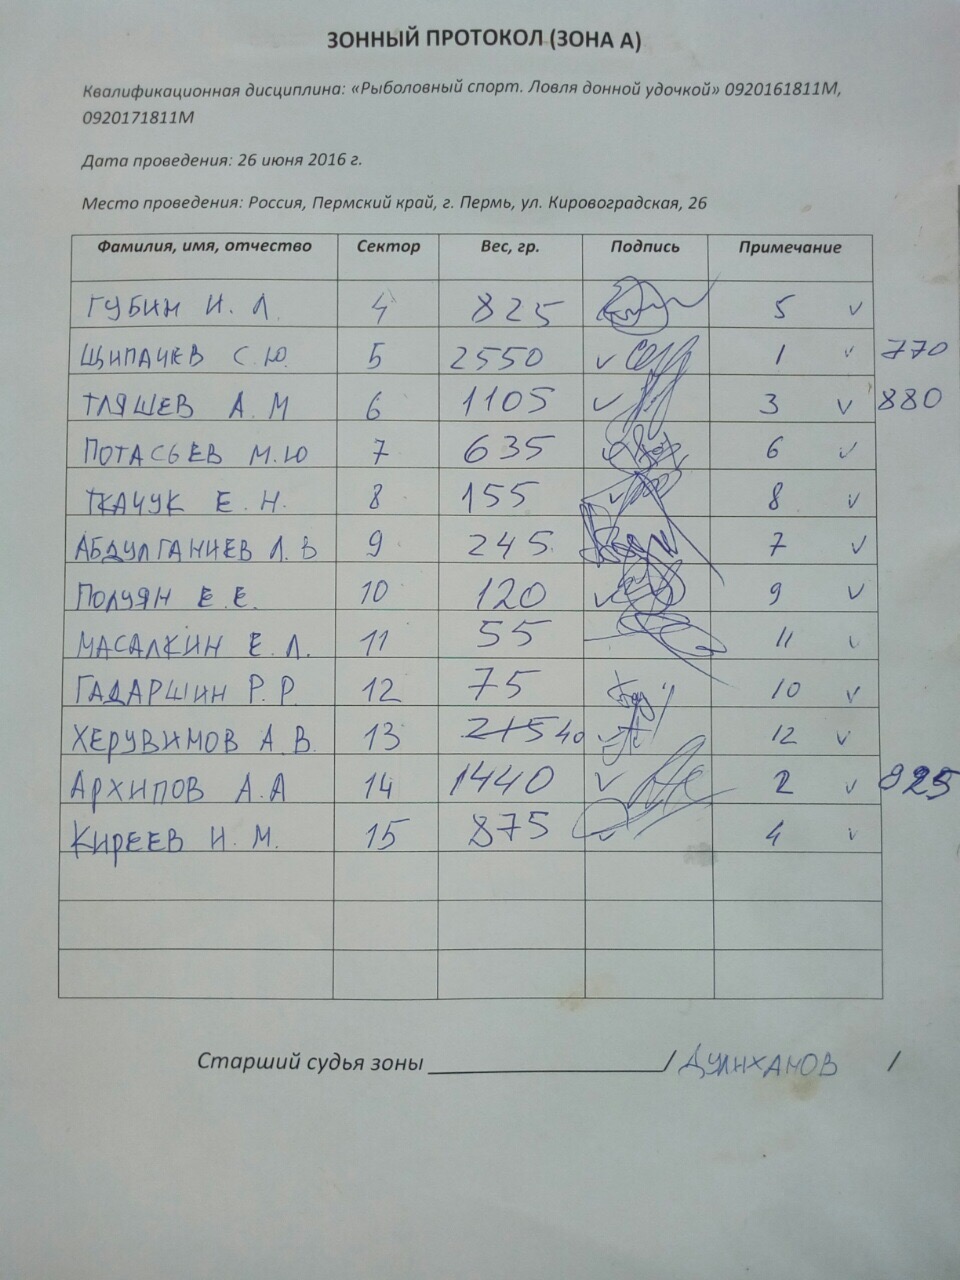 ЗОННЫЙ ПРОТОКОЛ (ЗОНА А)
Квалификационная дисциплина: «Рыболовный спорт. Ловля донной удочкой» 0920161811М,
0920171811М
Дата проведения: 26 июня 2016 г.
Место проведения: Россия, Пермский край, г. Пермь, ул. Кировоградская, 26
Фамилия, имя, отчество Сектор Вес, гр. Подпись Примечание
ГУБИН И. Л. 4 825 5 v
ЩИПАЧЕВ С.Ю. 5 2550 v 1 v 770
ТЛЯШЕВ А.М 6 1105 v 3 v 880
ПОТАСЬЕВ М.Ю 7 635 6 v
ТКАЧУК Е.Н. 8 155 v 8 v
АБДУЛГАНИЕВ Л.В 9 245 7 v
ПОЛУЯН Е.Е. 10 120 v 9 v
МАСАЛКИН Е.Л. 11 55 11 v
ГАДАРШИН Р.Р. 12 75 10 v
ХЕРУВИМОВ А.В. 13 215 40 v 12 v
АРХИПОВ А.А 14 1440 v 2 v 925
КИРЕЕВ И.М. 15 875 v 4 v
Старший судья зоны ____________________/ ДУЛИХАНОВ /